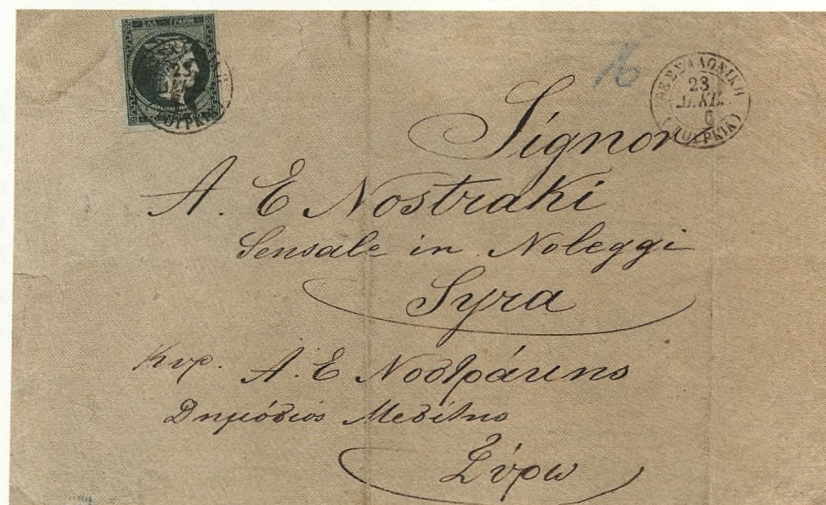 ΕΛΛ. ΓΡΑΜΜ.
ΘΕΣΣΑΛΟΝΙΚΗ
23
ΔΕΚΕ.
6
(ΤΟΥΡΚΙΑ)
Signor
A. E Nostraki
Sensale in Noleggi
Syra
Κυρ. Α. Ε Νοστράκης
Δημόσιος Μεσίτης
Σύρω